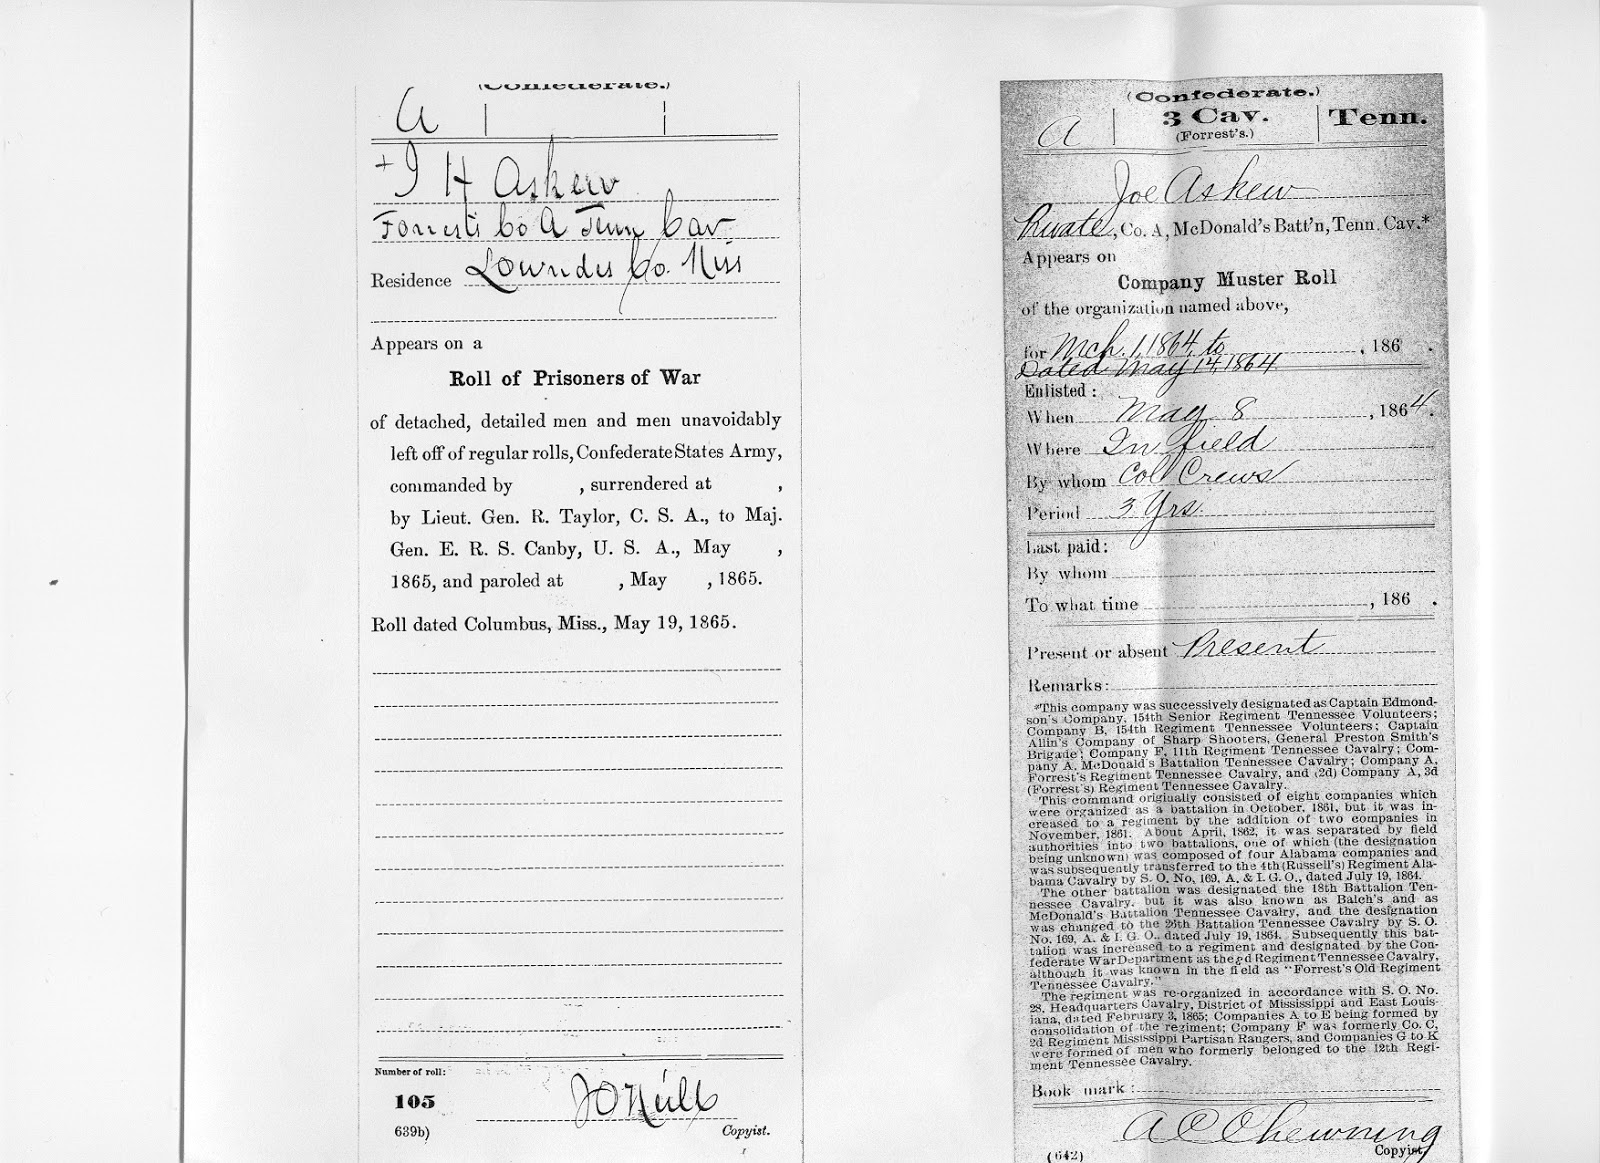 (Confederate.)
A
+ J H Askew
Forrest's Co A Tenn Cav
Residence Lowndes Co. Miss
Appears on a
Roll of Prisoners of War
of detached, detailed men and men unavoidably
left off of regular rolls, Confederate States Army,
commanded by , surrendered at ,
by Lieut. Gen. R. Taylor, C. S. A., to Maj.
Gen. E. R. S. Canby, U. S. A., May ,
1865, and paroled at , May , 1865.
Roll dated Columbus, Miss., May 19, 1865.
Number of roll:
105
639b)
J O'Neill
Copyist.
(Confederate.)
A 3 Cav. Tenn.
(Forrest's.)
Joe Askew
Private, Co. A, McDonald's Batt'n, Tenn. Cav.*
Appears on
Company Muster Roll
of the organization named above,
for Mch. 1, 1864, to , 186 .
Dated May 14, 1864
Enlisted:
When May 8 , 1864.
Where In field
By whom Col Crews
Period 3 Yrs.
Last paid:
By whom
To what time , 186 .
Present or absent Present
Remarks:
*This company was successively designated as Captain Edmond-
son's Company, 154th Senior Regiment Tennessee Volunteers;
Company B, 154th Regiment Tennessee Volunteers; Captain
Allin's Company of Sharp Shooters, General Preston Smith's
Brigade; Company F, 11th Regiment Tennessee Cavalry; Com-
pany A, McDonald's Battalion Tennessee Cavalry; Company A,
Forrest's Regiment Tennessee Cavalry, and (2d) Company A, 3d
(Forrest's) Regiment Tennessee Cavalry.
This command originally consisted of eight companies which
were organized as a battalion in October, 1861, but it was in-
creased to a regiment by the addition of two companies in
November, 1861. About April, 1862, it was separated by field
authorities into two battalions, one of which (the designation
being unknown) was composed of four Alabama companies and
was subsequently transferred to the 4th (Russell's) Regiment Ala-
bama Cavalry by S. O. No. 169, A. & I. G. O., dated July 19, 1864.
The other battalion was designated the 18th Battalion Ten-
nessee Cavalry, but it was also known as Balch's and as
McDonald's Battalion Tennessee Cavalry, and the designation
was changed to the 26th Battalion Tennessee Cavalry by S. O.
No. 169, A. & I. G. O., dated July 19, 1864. Subsequently this bat-
talion was increased to a regiment and designated by the Con-
federate War Department as the 3d Regiment Tennessee Cavalry,
although it was known in the field as "Forrest's Old Regiment
Tennessee Cavalry."
The regiment was re-organized in accordance with S. O. No.
28, Headquarters Cavalry, District of Mississippi and East Louis-
iana, dated February 3, 1865; Companies A to E being formed by
consolidation of the regiment; Company F was formerly Co. C,
2d Regiment Mississippi Partisan Rangers, and Companies G to K
were formed of men who formerly belonged to the 12th Regi-
ment Tennessee Cavalry.
Book mark:
A C Chewning
(642)
Copyist.